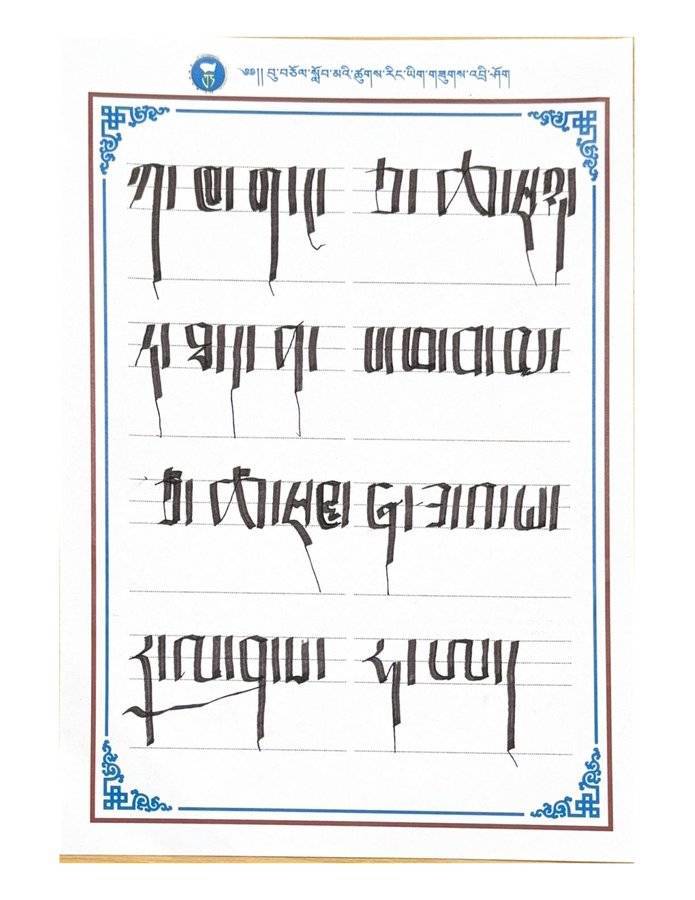 ༄༅།། བུ་བཅོལ་སློབ་མའི་ཚུགས་རིང་ཡིག་གཟུགས་འབྲི་ཤོག
ཀ་ཁ་ག་ང་ ཅ་ཆ་ཇ་ཉ་
ཏ་ཐ་ད་ན་ པ་ཕ་བ་མ་
ཙ་ཚ་ཛ་ཝ་ ཞ་ཟ་འ་ཡ་
ར་ལ་ཤ་ས་ ཧ་ཨ།